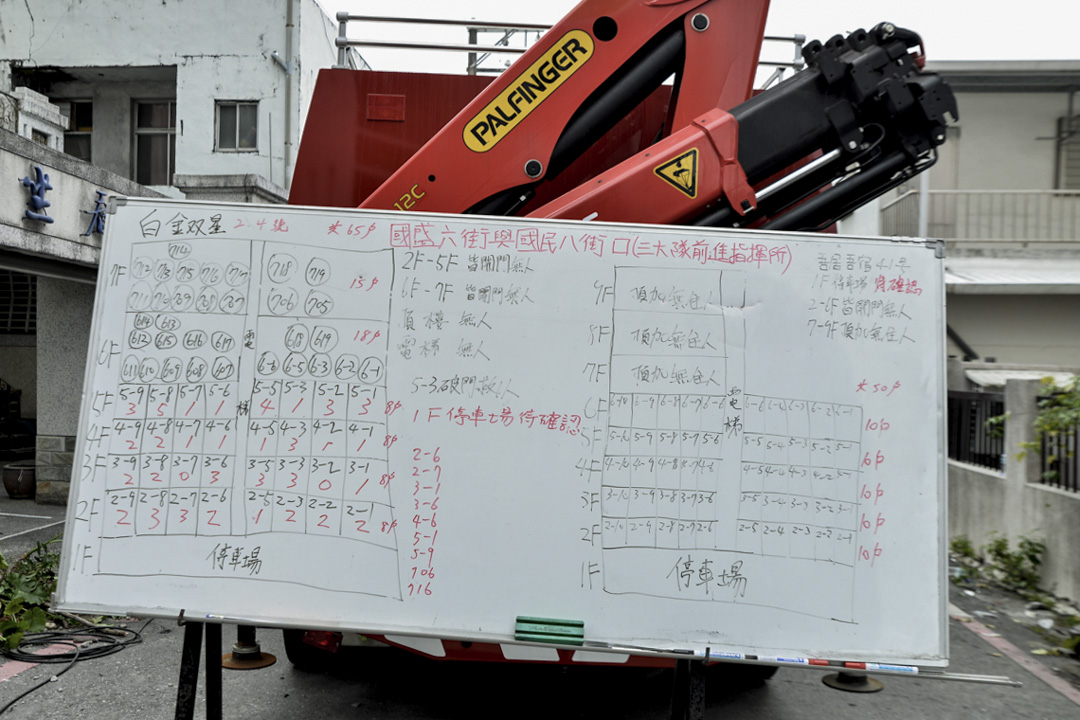 PALFINGER
12C
白金双星 2.4號 *65戶
國盛六街與國民八街口(三大隊前進指揮所)
7F
712 713 715 716 717
711 710 709 708 707
718 719
706 705
15戶
6F
612 615 616 617
611 610 609 608 607
618 619
6-6 6-5 6-3 6-2 6-1
18戶
電梯
5F
5-9 5-8 5-7 5-6
3 5 1 1
5-5 5-3 5-2 5-1
4 1 3 3
8戶
4F
4-9 4-8 4-7 4-6
2 2 1 1
4-5 4-3 4-2 4-1
8戶
3F
3-9 3-8 3-7 3-6
2 2 0 3
3-5 3-3 3-2 3-1
3 3 0 1
8戶
2F
2-9 2-8 2-7 2-6
2 3 3 2
2-5 2-3 2-2 2-1
1 2 2 2
8戶
1F
停車場
2F-5F 皆開門無人
6F-7F 皆開門無人
頂樓 無人
電梯 無人
5-3破門救人
1F 停車場 待確認
2-6
2-7
3-1
3-6
4-6
5-1
5-9
706
716
1F 停車場 待確認
2-6F皆開門無人
7-9F頂加無住人
*50戶
9F 頂加無住人
8F 頂加無住人
7F 頂加無住人
電梯
6F
6-10 6-9 6-8 6-7 6-6
6-5 6-4 6-3 6-2 6-1
10戶
5F
5-10 5-9 5-8 5-7 5-6
5-5 5-4 5-3 5-2 5-1
10戶
4F
4-10 4-9 4-8 4-7 4-6
4-5 4-4 4-3 4-2 4-1
10戶
3F
3-10 3-9 3-8 3-7 3-6
3-5 3-4 3-3 3-2 3-1
10戶
2F
2-10 2-9 2-8 2-7 2-6
2-5 2-4 2-3 2-2 2-1
10戶
1F
停車場